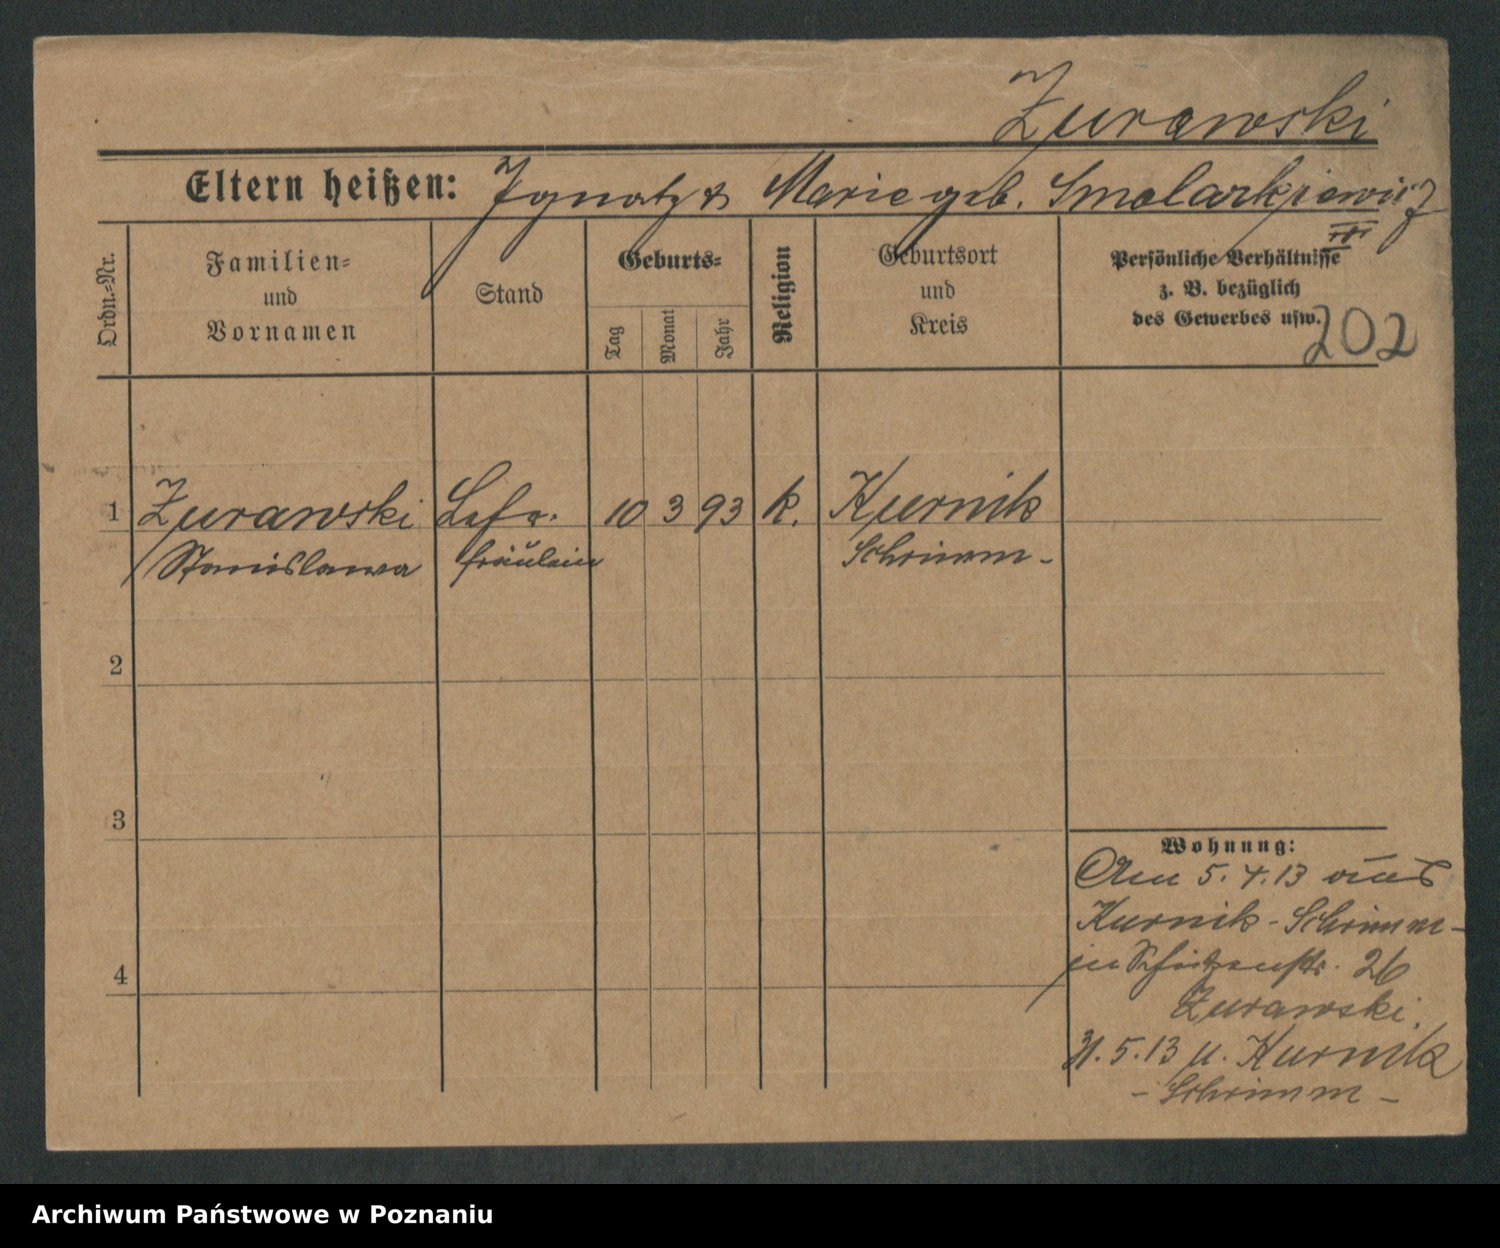 Zurawski
Eltern heißen: Ignatz & Marie geb. Smolarkiewicz
III
Ordn.-Nr.
Familien-
und
Vornamen
Stand
Geburts-
Tag
Monat
Jahr
Religion
Geburtsort
und
Kreis
Persönliche Verhältnisse
z. B. bezüglich
des Gewerbes usw.
202
1 Zurawski 10 3 93 k. Kurnik
Stanislawa fräulein Schrimm-
2
3
4
Wohnung:
Am 5.4.13 aus
Kurnik-Schrimm-
in Schützenstr. 26
Zurawski.
31.5.13 n. Kurnik
- Schrimm -
Archiwum Państwowe w Poznaniu